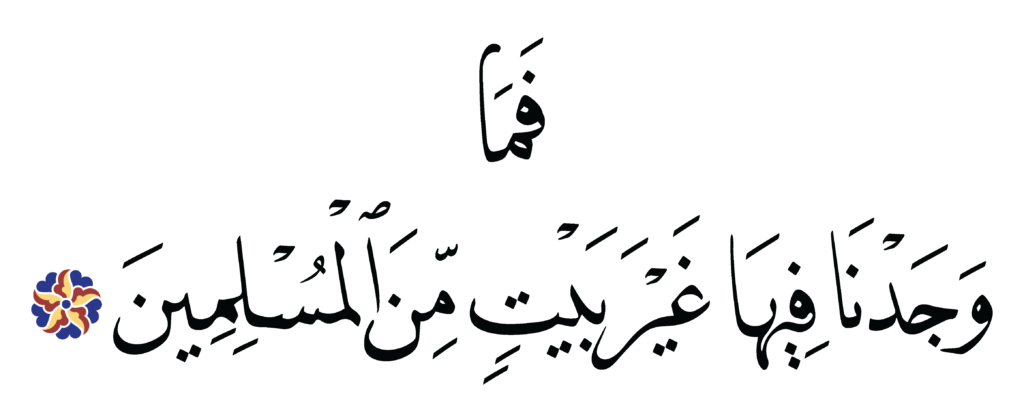 فَمَا
وَجَدْنَا فِيهَا غَيْرَ بَيْتٍ مِّنَ ٱلْمُسْلِمِينَ